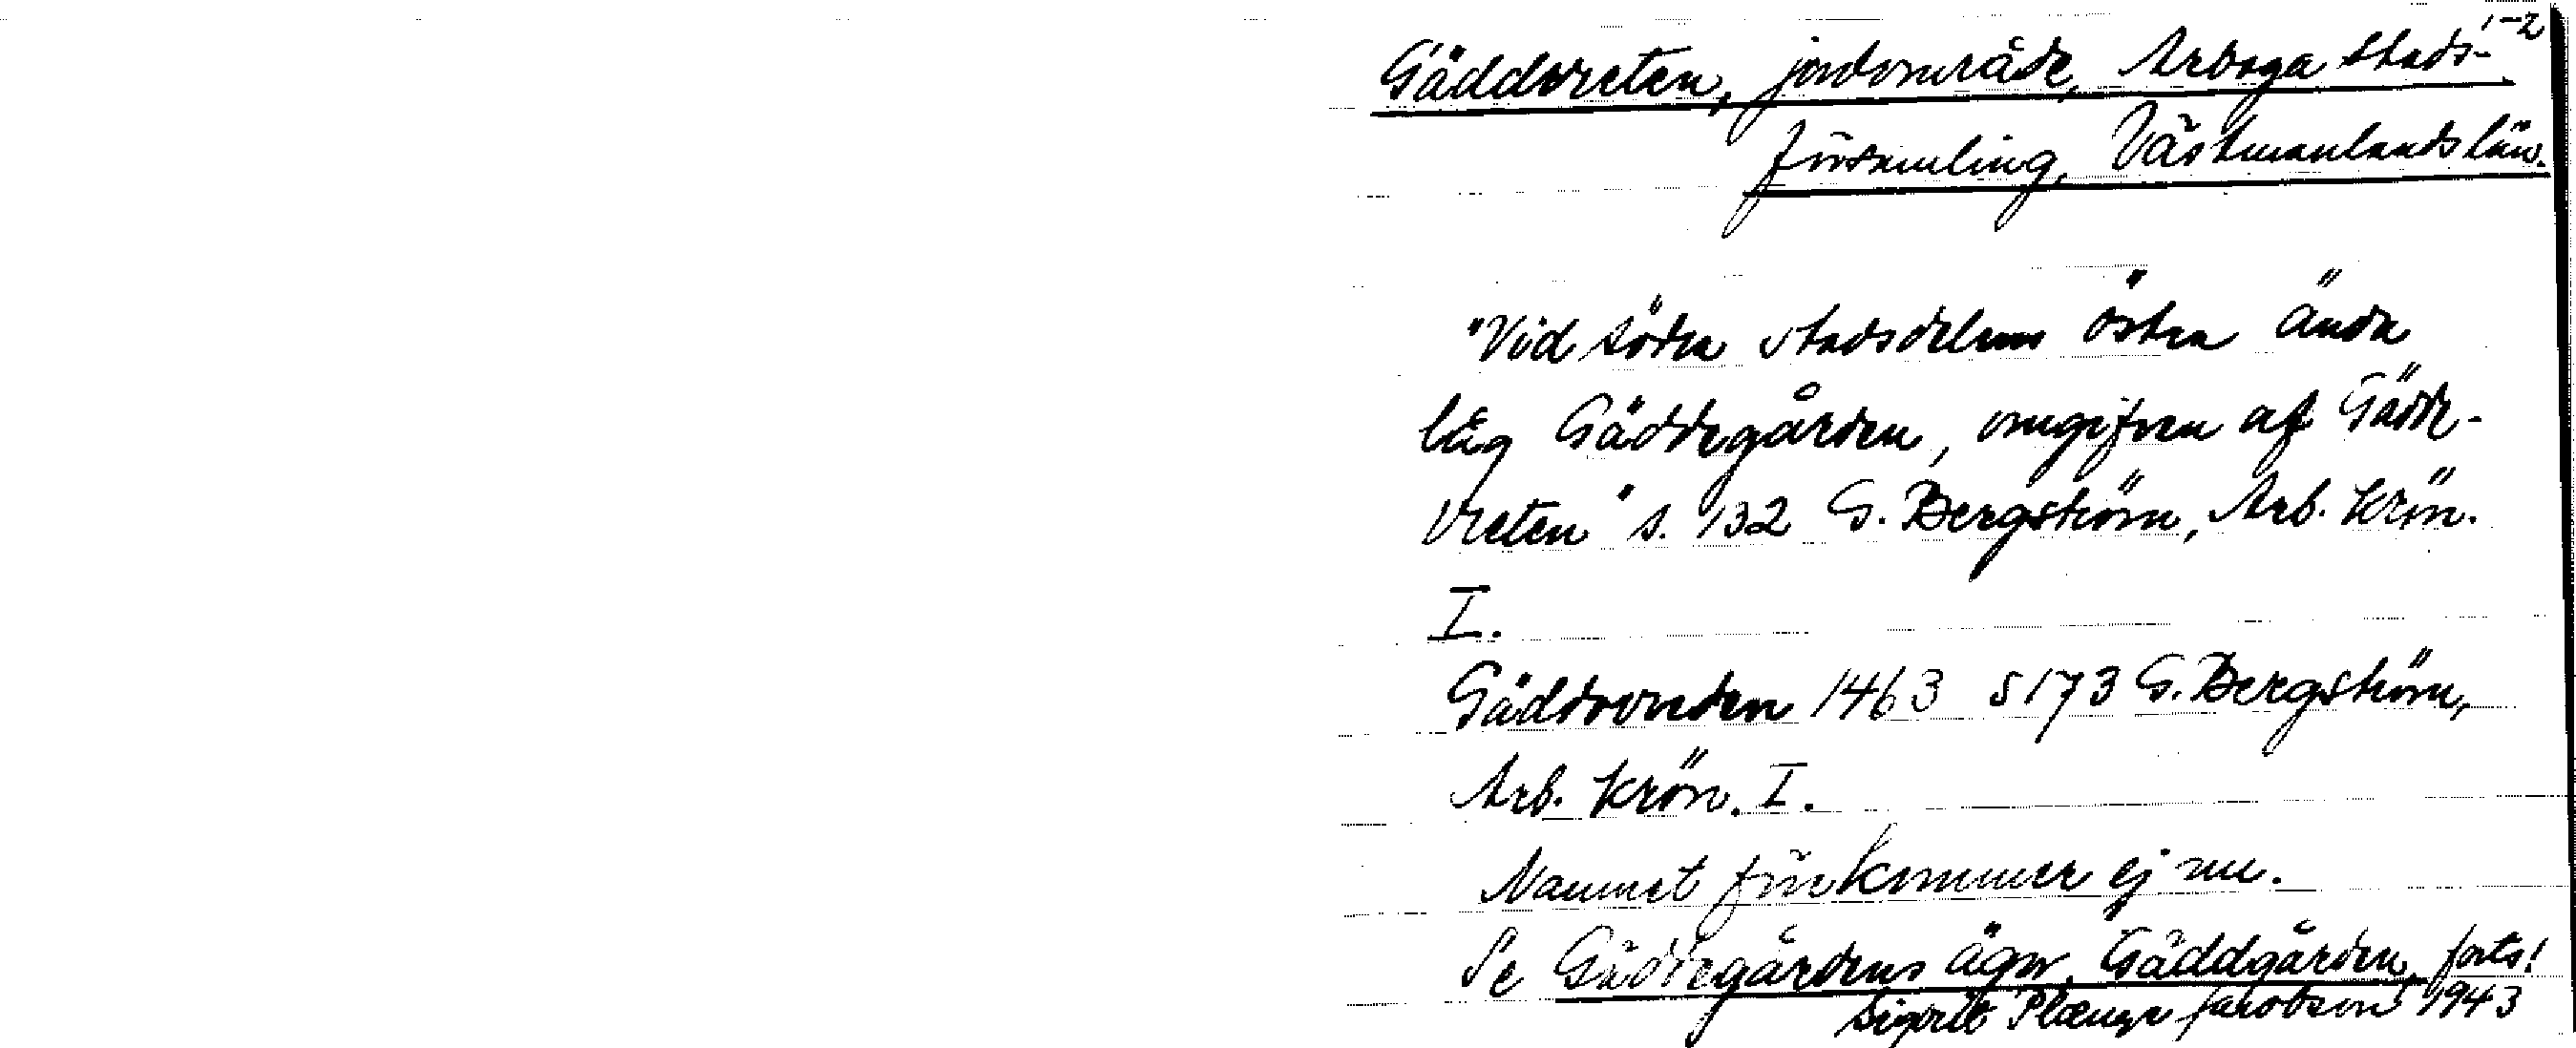 1-2
Gäddvreten, jordområde, Arboga stads-
församling, Västmanlands län.
"Vid södra stadsdelens östra ända
låg Gäddegården, omgifven af Gädde-
vreten" s. 132 G. Bergström, Arb. Krön.
I.
Gäddovreden 1463 s 173 G. Bergström,
Arb. Krön. I.
Namnet förekommer ej nu.
Se Gäddegårdens ägor, Gäddgården, forts!
Sigrid Plænge Jacobson 1943